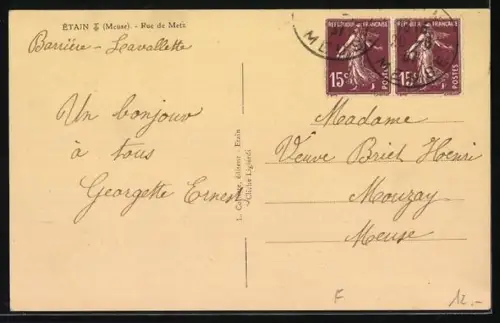 ÉTAIN (Meuse) - Rue de Metz
Barrière - Lavallette
Un bonjour
à tous
Georgette Ernest
L. Collignon, éditeur - Etain
Cliché Liglerdi
REPUBLIQUE FRANÇAISE
15c POSTES
REPUBLIQUE FRANÇAISE
15c POSTES
MEUSE
Madame
Veuve Briet Henri
Mouzay
Meuse
F
12.-